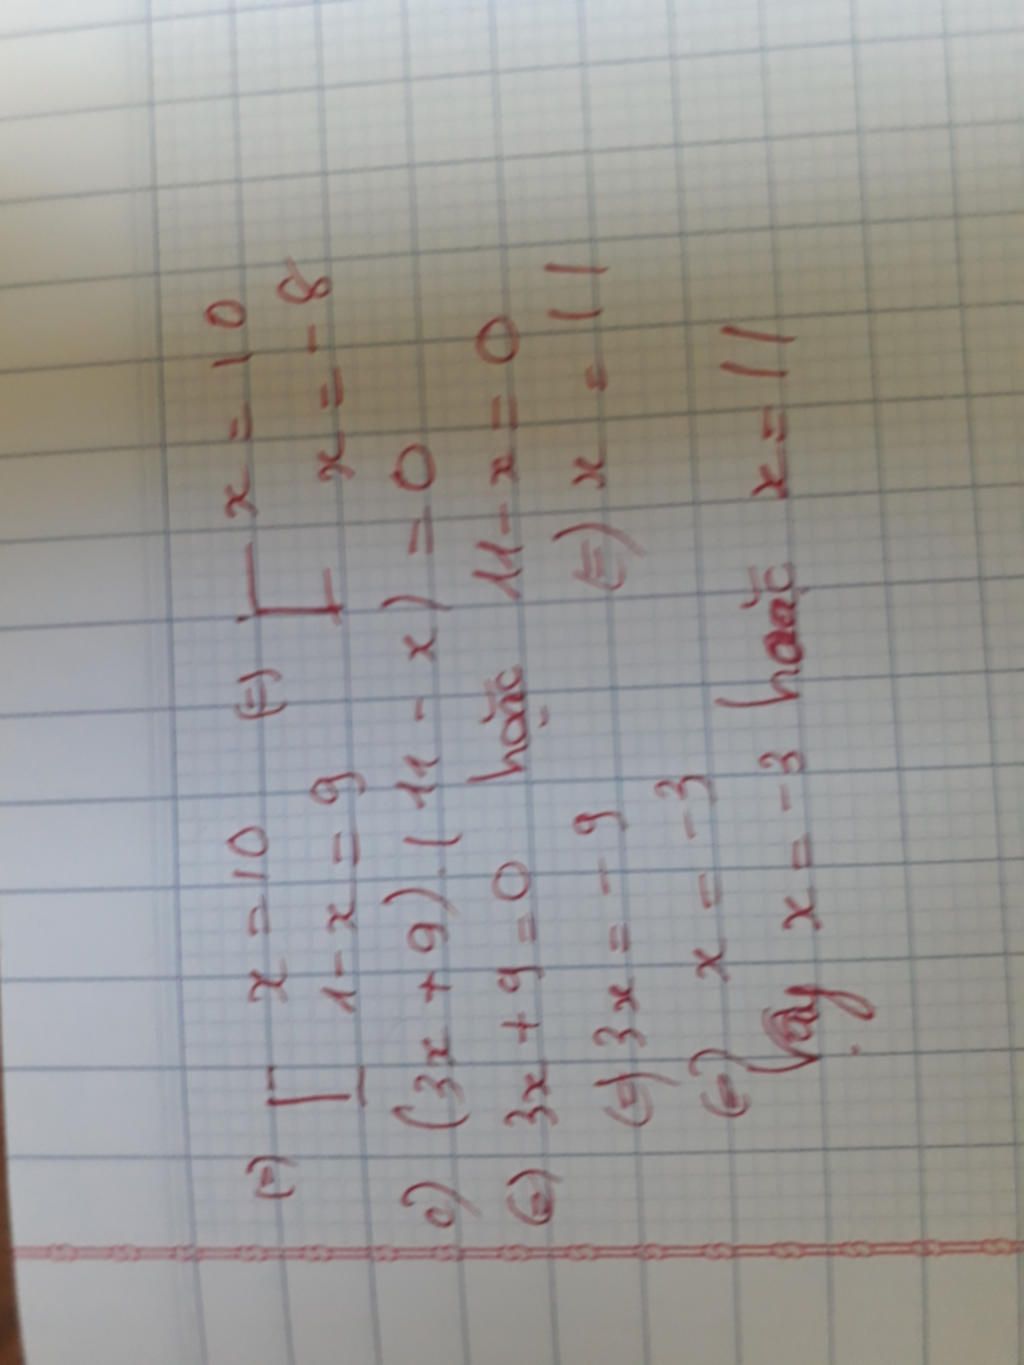 (=) [ x = 10 (=) [ x = 10
1 - x = 9 x = -8
c) (3x + 9).(11 - x) = 0
(=) 3x + 9 = 0 hoặc 11 - x = 0
(=) 3x = -9 (=) x = 11
(=) x = -3
Vậy x = -3 hoặc x = 11